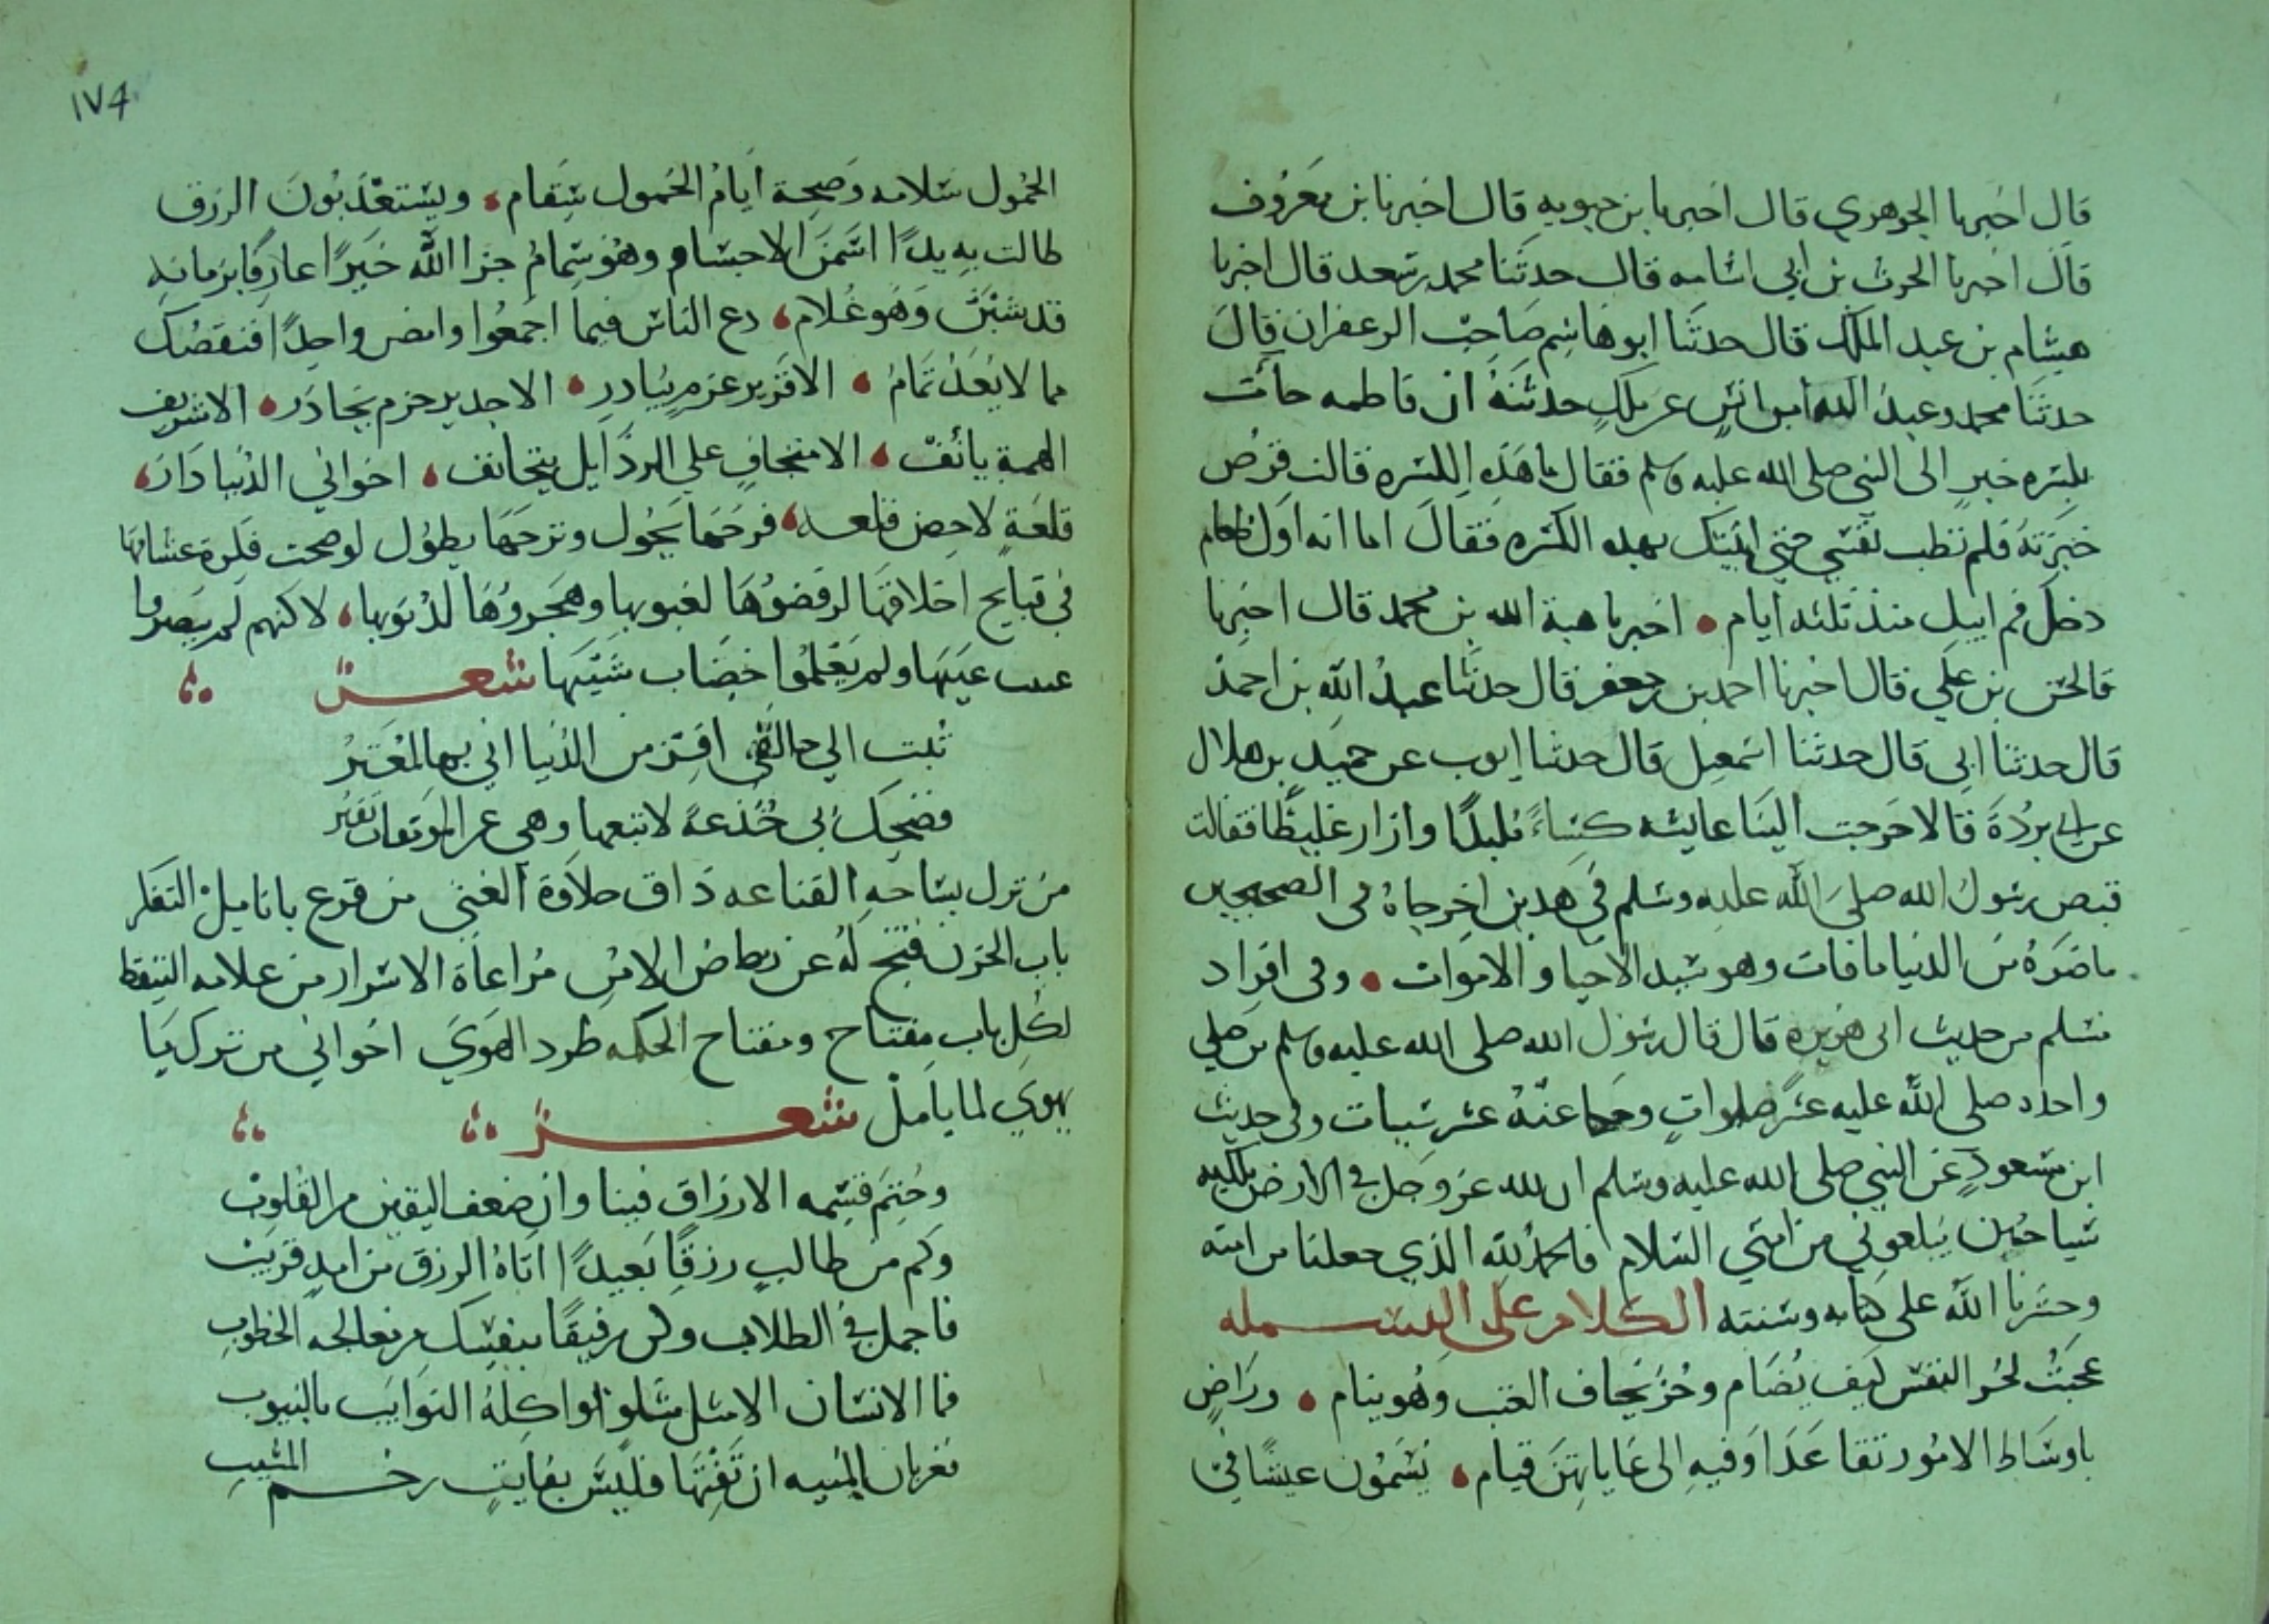 قال اخبرنا الجوهري قال اخبرنا بن حيويه قال اخبرنا بن معروف
قال اخبرنا الحرث بن ابي اسامه قال حدثنا محمد بن سعد قال اخبرنا
هشام بن عبد الملك قال حدثنا ابو هاشم صاحب الزعفران قال
حدثنا محمد وعبد الله ان انس بن ملك حدثنه ان فاطمه جأت
بكسره خبز الى النبي صلى الله عليه وسلم فقال ما هذه الكسره قالت قرص
خبزته فلم تطب نفسي حتى اتيتك بهذه الكسره فقال اما انه اول طعام
دخل فم ابيك منذ ثلثه ايام اخبرنا هبة الله بن محمد قال اخبرنا
الحسن بن علي قال اخبرنا احمد بن جعفر قال حدثنا عبد الله بن احمد
قال حدثنا ابي قال حدثنا اسمعيل قال حدثنا ايوب عن حميد بن هلال
عن ابي بردة قال اخرجت الينا عايشه كساءً ملبدًا وازار غليظًا فقالت
قبض رسول الله صلى الله عليه وسلم في هذين اخرجاه في الصحيحين
ما ضره من الدنيا ما فات وهو سيد الاحيا والاموات وفي افراد
مسلم من حديث ابي هريره قال قال رسول الله صلى الله عليه وسلم من صلي
واحده صلى الله عليه عشر صلوات ومحا عنه عشر سيات وفي حديث
ابن مسعود عن النبي صلى الله عليه وسلم ان لله عز وجل في الارض ملكيه
سياحين يبلغوني من امتي السلام فالحمد لله الذي جعلنا من امته
وحشرنا الله على كتابه وسنته الكلام على البسمله
عجبت لحر النفس كيف يضام وحر يخاف العتب وهو ينام وراض
باوساط الامور تقاعدا وفيه الى غاياتهن قيام يسمون عيشًا في
١٧٤
الخمول سلامه وصحة ايام الخمول سقام ويستعذبون الرزق
طالت به يدًا اسمن الاجسام وهو سمام جزا الله خيرًا عارفًا بزمانه
قد شبن وهو غلام دع الناس فيما اجمعوا وامض واحدًا فنقصك
مما لا يعد تمام الا قرير عزم يبادر الا جديد حزم يحاذر الا شريف
الهمة يانف الا متجاف علي الرذايل يتجانف اخواني الدنيا دار
قلعة لا حصن قلعه فرحها يحول وترحها يطول لو صحت فكرة عشاقها
في قبايح اخلاقها لرفضوها لعيوبها وهجروها لذنوبها لاكنهم لم يبصروا
عيب عيبها ولم يعلموا خضاب شيبها شعر
ثبت الي خالقي افتر من الدنيا اني بها لمغتر
فضحك بي خدعة لا تتبعها وهي عن الموتعان تفتر
من نزل بساحة القناعه ذاق حلاوة الغني من قرع بانامل التفكر
باب الحزن فتح له عن رياض الامن مراعاة الاسرار من علامه التيقظ
لكل باب مفتاح ومفتاح الحكمه طرد الهوي اخواني من ترك ما
يهوي لما يامل شعر
وختم قسمه الارزاق فينا وان ضعف اليقين من القلوب
وكم من طالب رزقًا بعيدًا اتاه الرزق من امد قريب
فاجمل في الطلاب وكن رفيقًا بنفسك من معالجه الخطوب
فما الانسان الا مثل شلو تواكله النوايب بالنيوب
فقربان المنيه ان تفتها فليس بفايت رخم المشيب